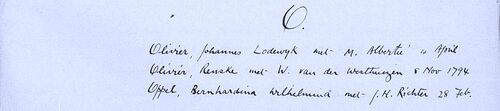 O.
Olivier, Johannes Lodewyk met M. Albertié 4 April
Olivier, Renske met W. van der Westhuizen 8 Nov 1794.
Oppel, Bernhardina Wilhelmina met J.H. Richter 28 Feb.